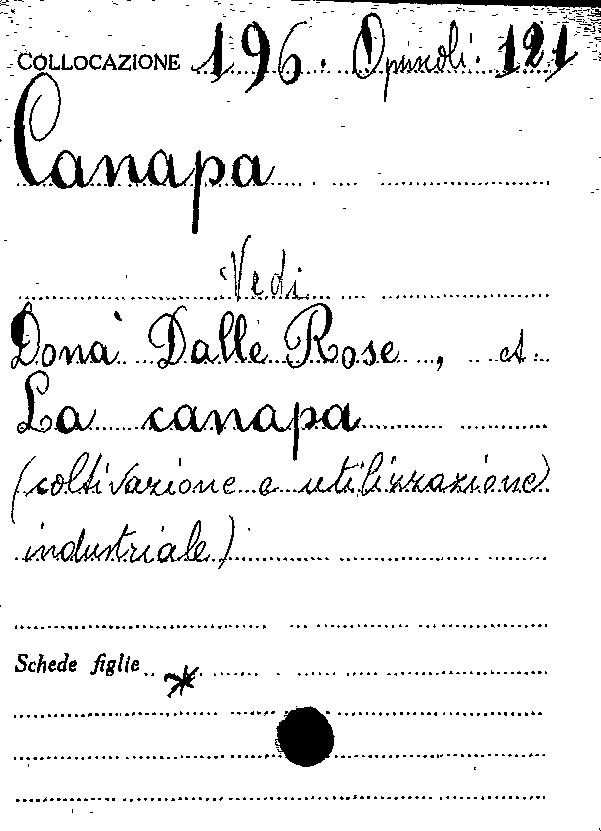 COLLOCAZIONE 196. Opuscoli. 121
Canapa
Vedi
Donà Dalle Rose, A.
La canapa
(coltivazione e utilizzazione
industriale)
Schede figlie *